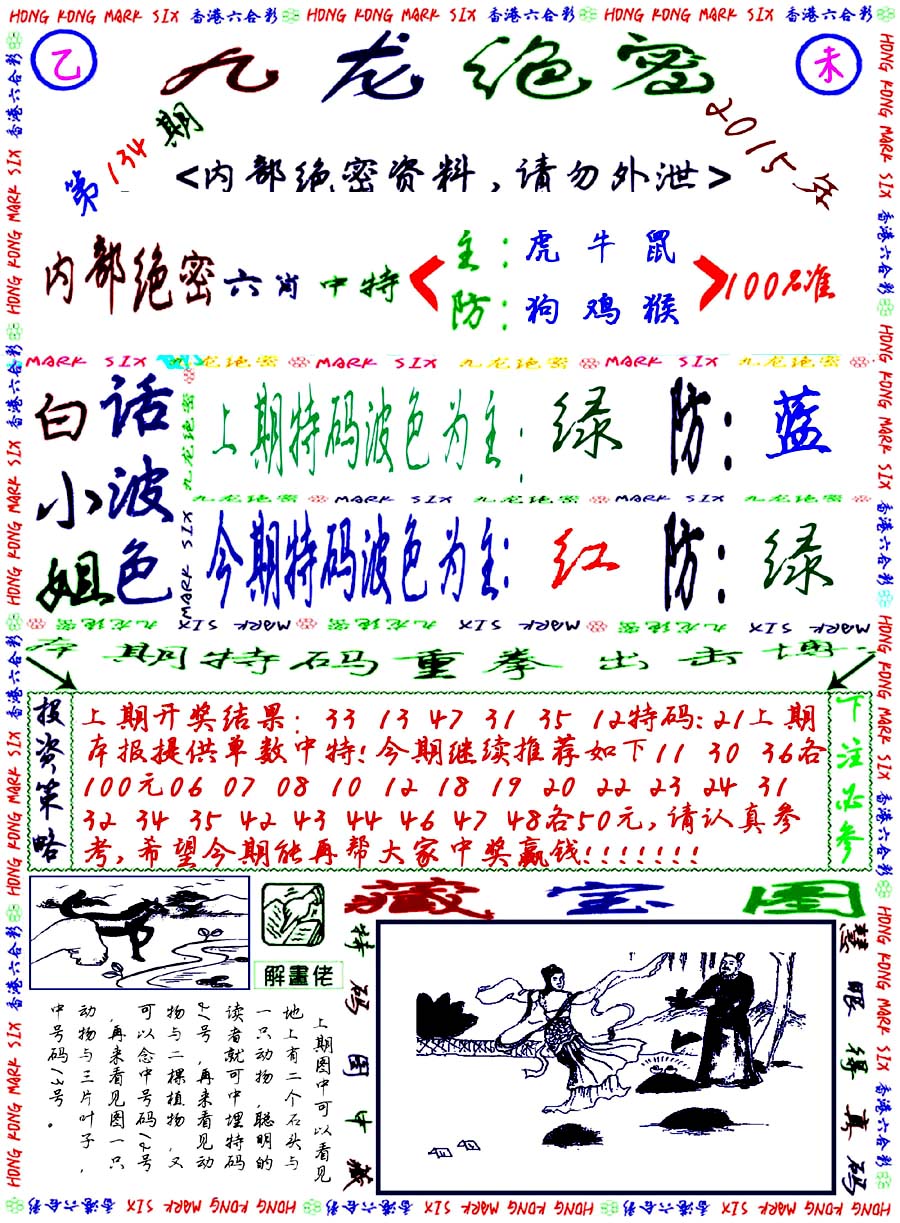 HONG KONG MARK SIX 香港六合彩 HONG KONG MARK SIX 香港六合彩 HONG KONG MARK SIX 香港六合彩
乙
九龙绝密
未
第134期
2015年
<内部绝密资料,请勿外泄>
内部绝密六肖中特
主:虎牛鼠
防:狗鸡猴
100%准
MARK SIX 九龙绝密 MARK SIX 九龙绝密 MARK SIX 九龙绝密
白话小波姐色
上期特码波色为主:绿 防:蓝
九龙绝密 MARK SIX 九龙绝密 MARK SIX 九龙绝密
今期特码波色为主:红 防:绿
九龙绝密 MARK SIX 九龙绝密 MARK SIX 九龙绝密 MARK SIX
本期特码重拳出击博
投资策略
上期开奖结果:33 13 47 31 35 12特码:21上期
本报提供单数中特!今期继续推荐如下11 30 36各
100元06 07 08 10 12 18 19 20 22 23 24 31
32 34 35 42 43 44 46 47 48各50元,请认真参
考,希望今期能再帮大家中奖赢钱!!!!!!!
下注必参
解畫佬
藏宝图
特码图中藏
慧眼得真码
上期图中可以看见
地上有二个石头与
一只动物,聪明的
读者就可中埋特码
21号,再来看见动
物与二棵植物,又
可以念中号码12号
,再来看见图一只
动物与三片叶子,
中号码13号。
HONG KONG MARK SIX 香港六合彩 HONG KONG MARK SIX 香港六合彩 HONG KONG MARK SIX 香港六合彩